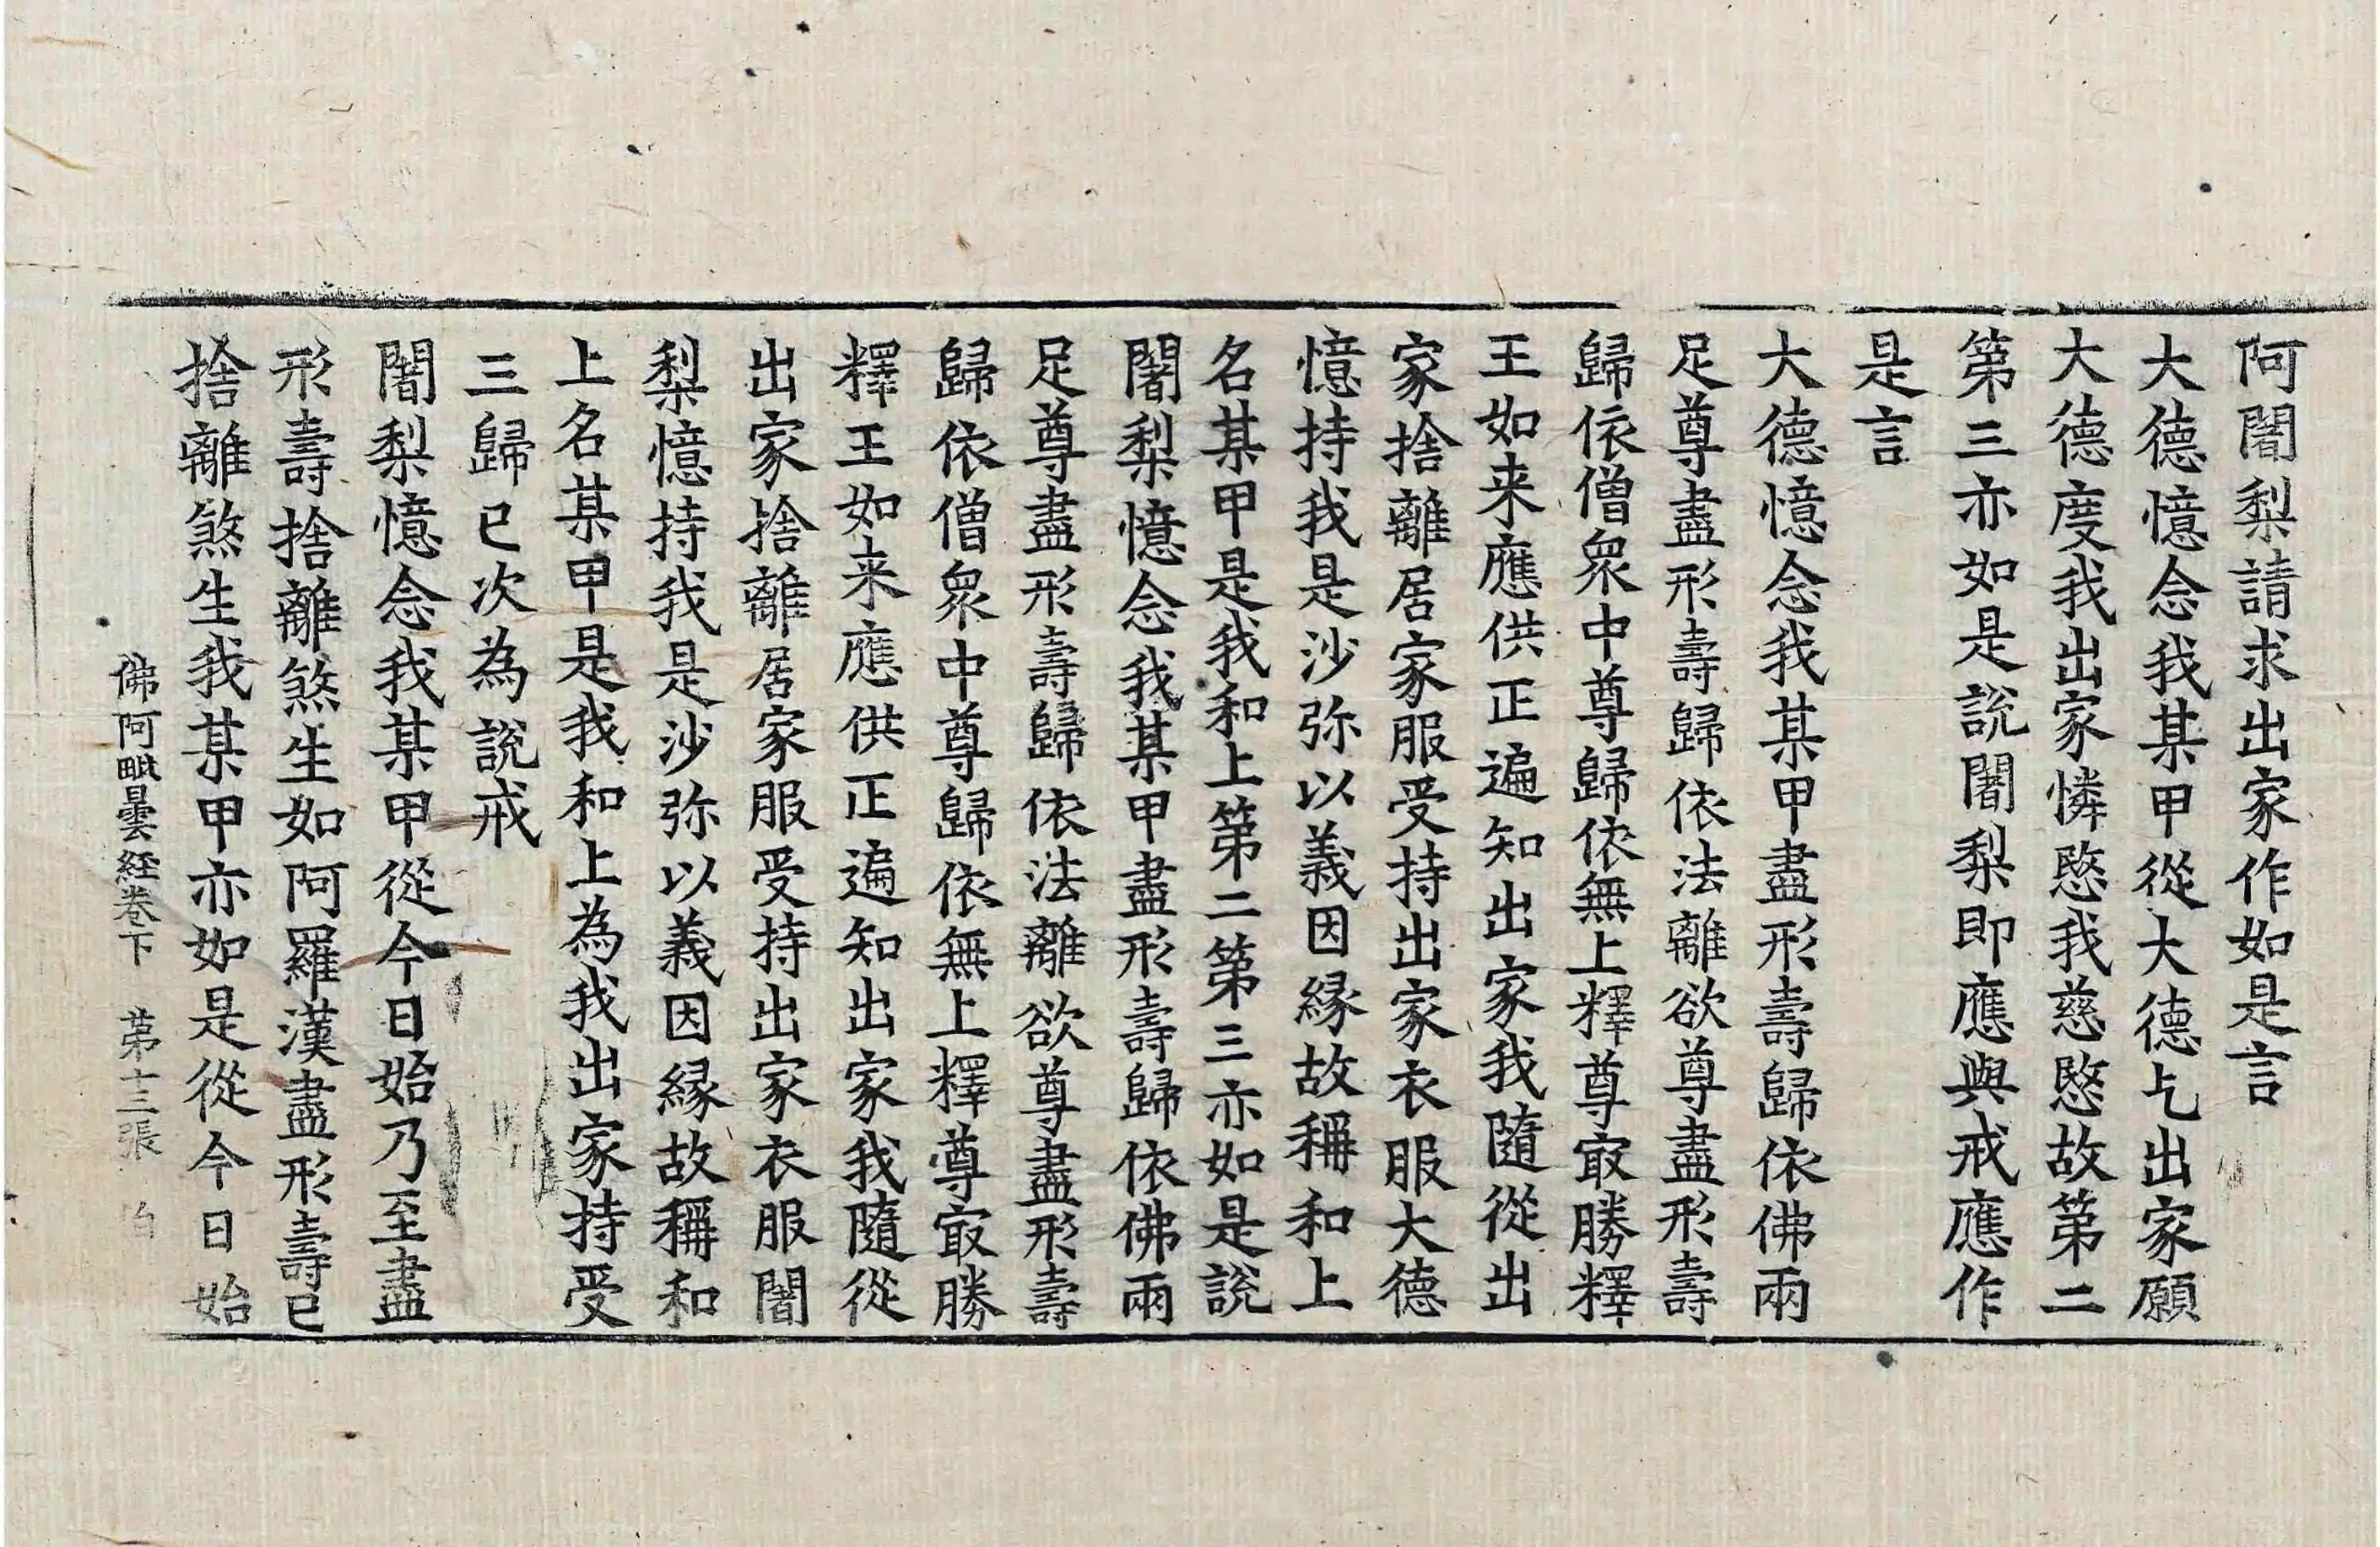 阿闍梨請求出家作如是言
大德憶念我某甲從大德乞出家願
大德度我出家憐愍我慈愍故第二
第三亦如是説闍梨即應與戒應作
是言
大德憶念我某甲盡形壽歸依佛兩
足尊盡形壽歸依法離欲尊盡形壽
歸依僧衆中尊歸依無上釋尊㝡勝釋
王如来應供正遍知出家我隨從出
家捨離居家服受持出家衣服大德
憶持我是沙弥以義因縁故稱和上
名某甲是我和上第二第三亦如是説
闍梨憶念我某甲盡形壽歸依佛兩
足尊盡形壽歸依法離欲尊盡形壽
歸依僧衆中尊歸依無上釋尊㝡勝
釋王如来應供正遍知出家我隨從
出家捨離居家服受持出家衣服闍
梨憶持我是沙弥以義因縁故稱和
上名某甲是我和上為我出家持受
三歸已次為説戒
闍梨憶念我某甲從今日始乃至盡
形壽捨離煞生如阿羅漢盡形壽已
捨離煞生我某甲亦如是從今日始
佛阿毗曇経卷下 第十三張